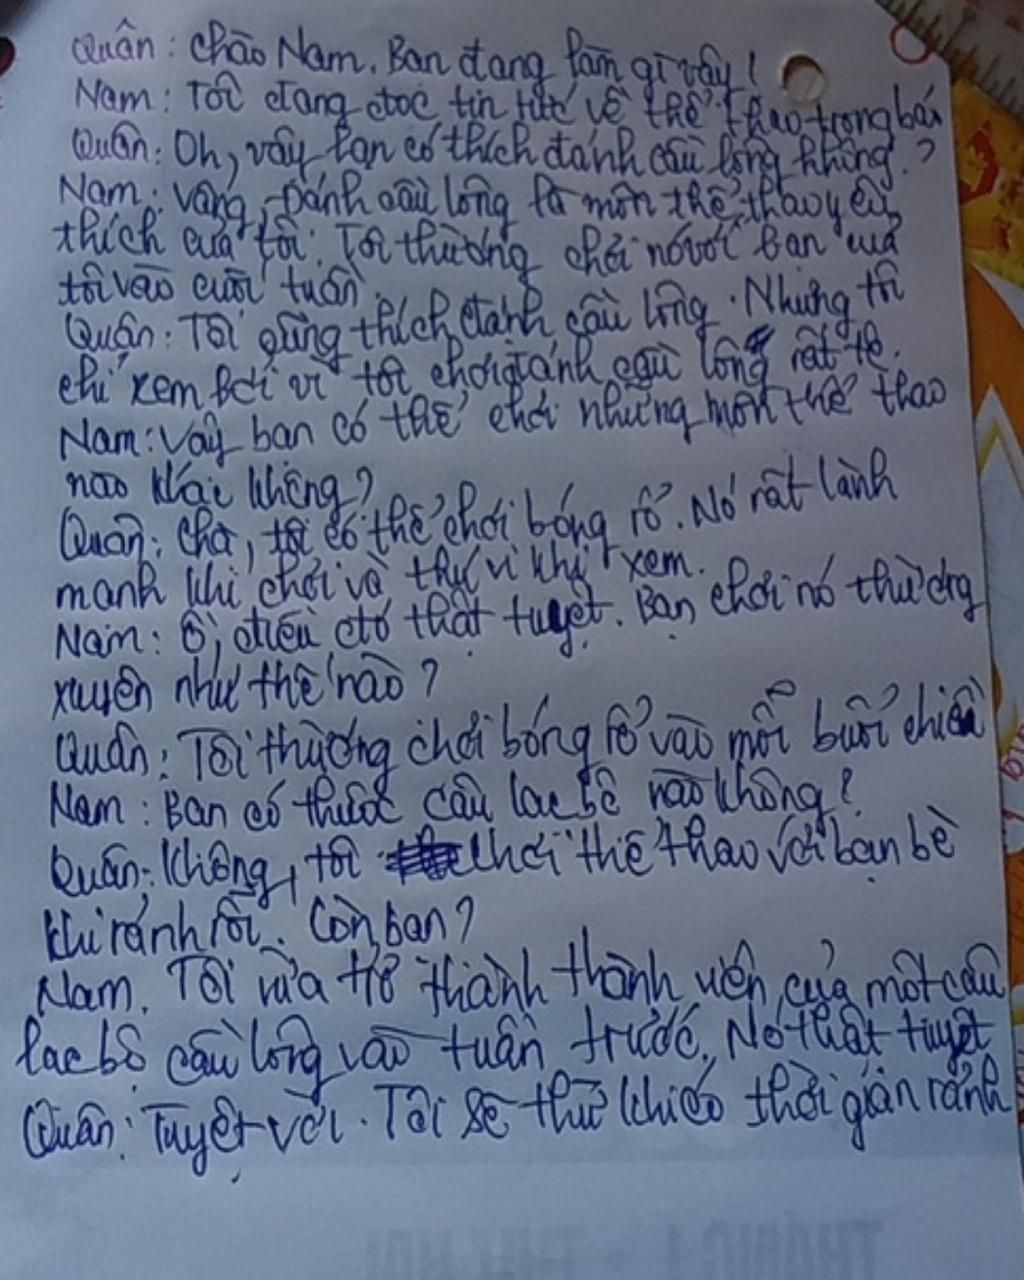 Quân: chào Nam. Bạn đang làm gì vậy!
Nam: Tôi đang đọc tin tức về thể thao trong báo
Quân: Oh, vậy bạn có thích đánh cầu lông không?
Nam: Vâng, đánh cầu lông là môn thể thao yêu
thích của tôi. Tôi thường chơi nó với bạn của
tôi vào cuối tuần.
Quân: Tôi cũng thích đánh cầu lông. Nhưng tôi
chỉ xem bởi vì tôi chơi đánh cầu lông rất tệ.
Nam: Vậy bạn có thể chơi những môn thể thao
nào khác không?
Quân: Chà, tôi có thể chơi bóng rổ. Nó rất lành
mạnh khi chơi và thú vị khi xem.
Nam: Ồ, điều đó thật tuyệt. Bạn chơi nó thường
xuyên như thế nào?
Quân: Tôi thường chơi bóng rổ vào mỗi buổi chiều
Nam: Bạn có thuộc câu lạc bộ nào không?
Quân: Không, tôi chơi thể thao với bạn bè
khi rảnh rỗi. Còn bạn?
Nam. Tôi vừa trở thành thành viên của một câu
lạc bộ cầu lông vào tuần trước. Nó thật tuyệt
Quân: Tuyệt vời. Tôi sẽ thử khi có thời gian rảnh